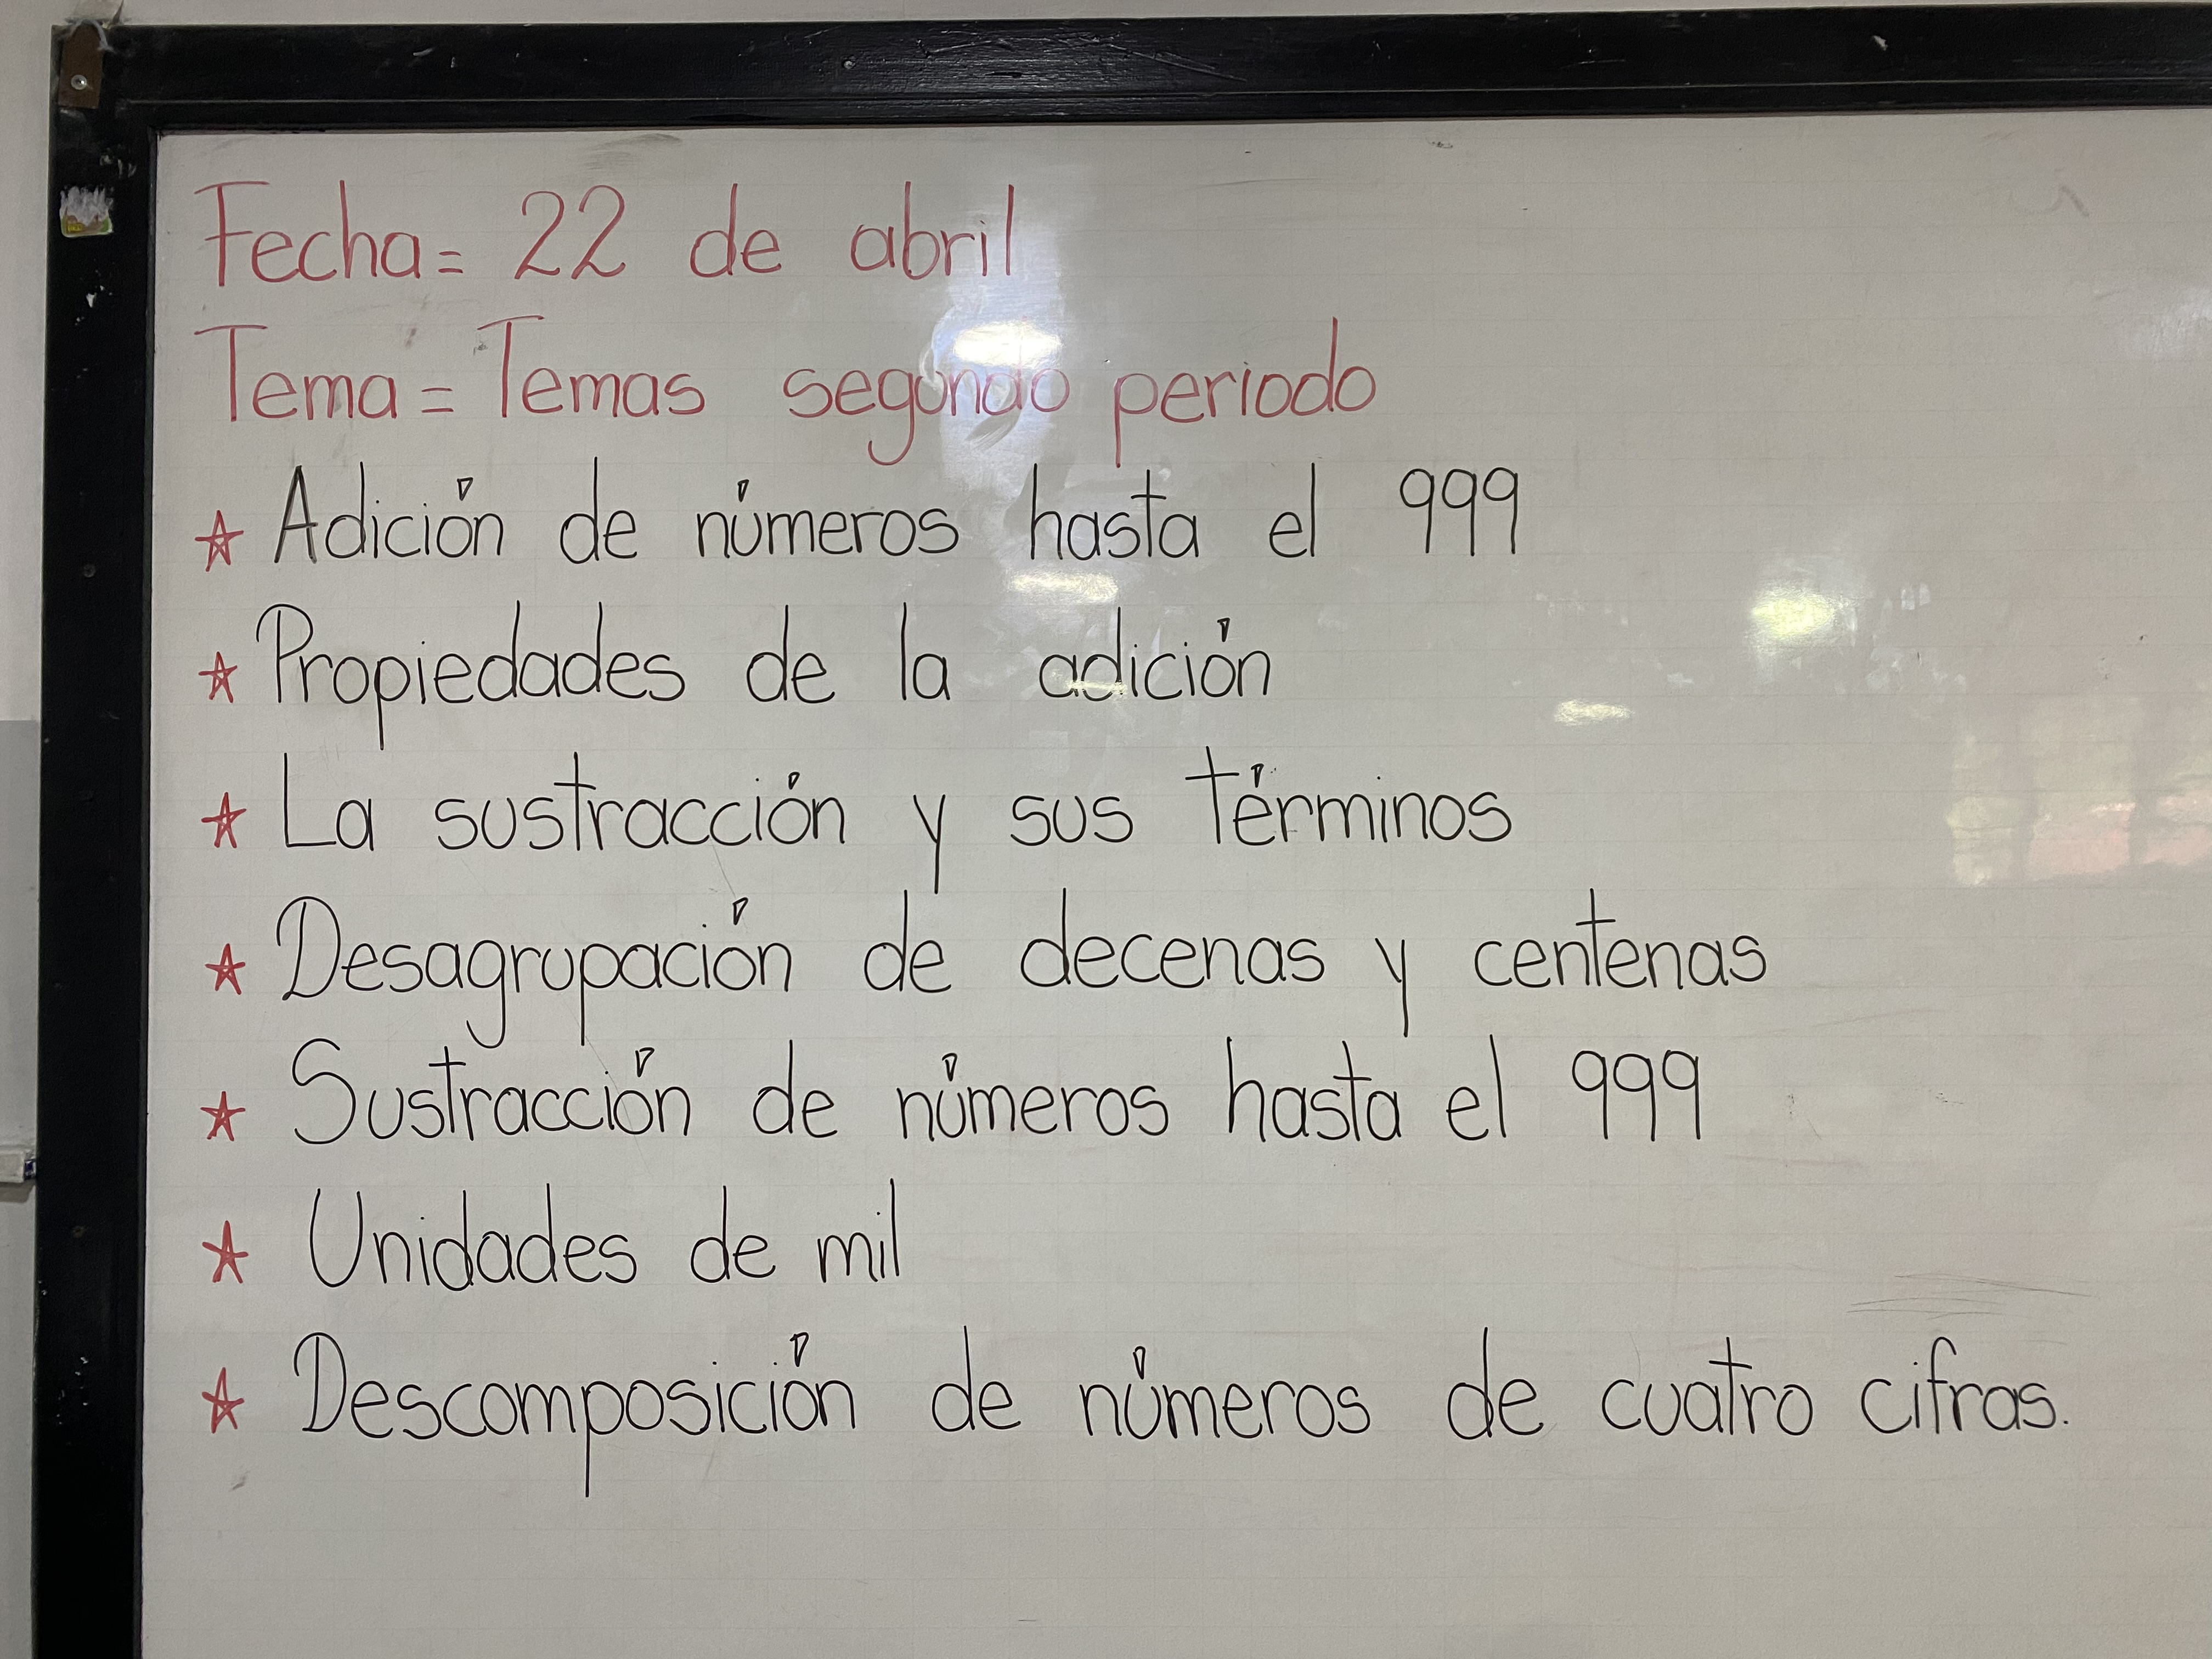 Fecha= 22 de abril
Tema= Temas segundo periodo
★ Adición de números hasta el 999
★ Propiedades de la adición
★ La sustracción y sus términos
★ Desagrupación de decenas y centenas
★ Sustracción de números hasta el 999
★ Unidades de mil
★ Descomposición de números de cuatro cifras.